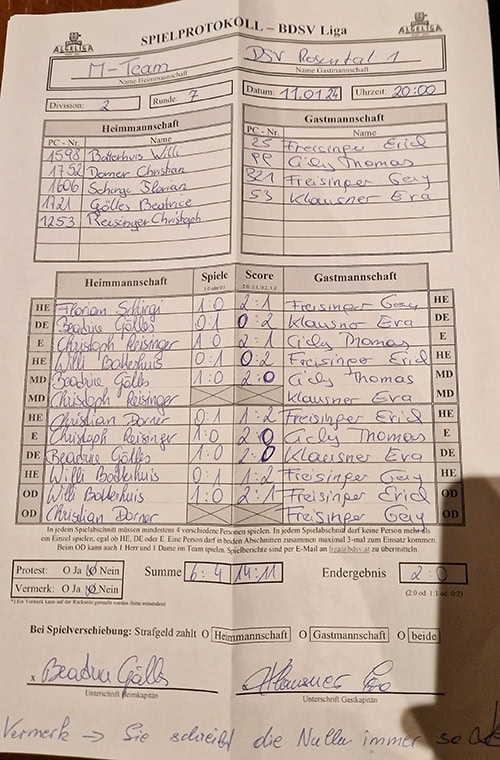 SPIELPROTOKOLL – BDSV Liga
ALGELIGA ALGELIGA
M-Team DSV Rosental 1
Name Heimmannschaft Name Gastmannschaft
Division: 2 Runde: 7 Datum: 11.01.24 Uhrzeit: 20:00
Heimmannschaft Gastmannschaft
PC - Nr. Name PC - Nr. Name
1598 Botterhuis Willi 25 Freisinger Erich
1752 Dorner Christian Cidy Thomas
1606 Schirgi Florian 321 Freisinger Gery
1721 Gölles Beatrice 53 Klausner Eva
1253 Reisinger Christoph
Heimmannschaft Spiele Score Gastmannschaft
1:0 oder 0:1 2:0, 2:1, 0:2, 1:2
HE Florian Schirgi 1:0 2:1 Freisinger Gery HE
DE Beatrice Gölles 0:1 0:2 Klausner Eva DE
E Christoph Reisinger 1:0 2:1 Cidy Thomas E
HE Willi Botterhuis 0:1 0:2 Freisinger Erich HE
MD Beatrice Gölles 1:0 2:0 Cidy Thomas MD
MD Christoph Reisinger Klausner Eva MD
HE Christian Dorner 0:1 1:2 Freisinger Erich HE
E Christoph Reisinger 1:0 2:0 Cidy Thomas E
DE Beatrice Gölles 1:0 2:0 Klausner Eva DE
HE Willi Botterhuis 0:1 1:2 Freisinger Gery HE
OD Willi Botterhuis 1:0 2:1 Freisinger Erich OD
OD Christian Dorner Freisinger Gery OD
In jedem Spielabschnitt müssen mindestens 4 verschiedene Personen spielen. In jedem Spielabschnitt darf keine Person mehr als
ein Einzel spielen, egal ob HE, DE oder E. Eine Person darf in beiden Abschnitten zusammen maximal 3-mal zum Einsatz kommen.
Beim OD kann auch 1 Herr und 1 Dame im Team spielen. Spielberichte sind per E-Mail an liga@bdsv.at zu übermitteln.
Protest: O Ja O Nein Summe 6:4 14:11 Endergebnis 2:0
Vermerk: O Ja O Nein (2:0 od. 1:1 od. 0:2)
*) Ein Vermerk kann auf der Rückseite gemacht werden (bitte umwenden)
Bei Spielverschiebung: Strafgeld zahlt O Heimmannschaft O Gastmannschaft O beide
x Beatrice Gölles Klausner Eva
Unterschrift Heimkapitän Unterschrift Gastkapitän
Vermerk → Sie schreibt die Nullen immer so